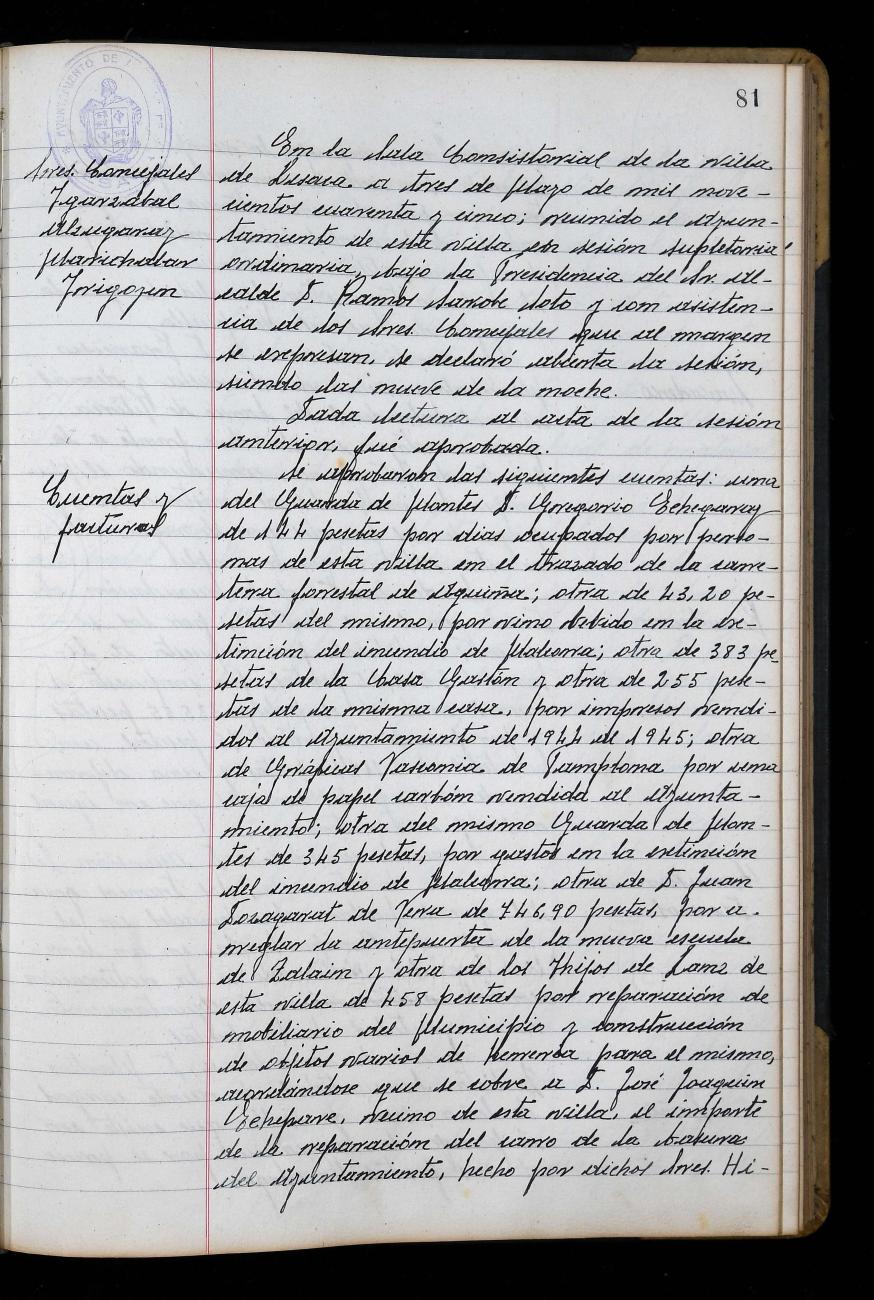 81
AYUNTAMIENTO DE
Sres. Concejales
Igarzabal
Alzugaray
Marichalar
Irigoyen
En la Sala Consistorial de la villa
de Lesaca a tres de Mayo de mil nove-
cientos cuarenta y cinco; reunido el Ayun-
tamiento de esta villa en sesión supletoria
ordinaria, bajo la Presidencia del Sr. Al-
calde D. Ramos Sarobe Soto y con asisten-
cia de los Sres. Concejales que al margen
se expresan, se declaró abierta la sesión,
siendo las nueve de la noche.
Dada lectura al acta de la sesión
anterior, fué aprobada.
Cuentas y
facturas
Se aprobaron las siguientes cuentas: una
del Guarda de Montes D. Gregorio Echegaray
de 144 pesetas por dias ocupados por perso-
nas de esta villa en el trazado de la carre-
tera forestal de Aguiña; otra de 43,20 pe-
setas del mismo, por vino bebido en la ex-
tinción del incendio de Malcorra; otra de 383 pe-
setas de la Casa Gastón y otra de 255 pese-
tas de la misma casa, por impresos vendi-
dos al Ayuntamiento de 1944 al 1945; otra
de Gráficas Vasconia de Pamplona por una
caja de papel carbón vendida al Ayunta-
miento; otra del mismo Guarda de Mon-
tes de 345 pesetas, por gastos en la extinción
del incendio de Malcorra; otra de D. Juan
de Vera de 746,90 pesetas, por a-
rreglar la antepuerta de la nueva escuela
de Zalain y otra de los Hijos de Lanz de
esta villa de 458 pesetas por reparación de
mobiliario del Municipio y construcción
de objetos varios de herrería para el mismo,
acordándose que se cobre a D. José Joaquin
Echepare, vecino de esta villa, el importe
de la reparación del carro de la basura
del Ayuntamiento, hecho por dichos Sres. Hi-